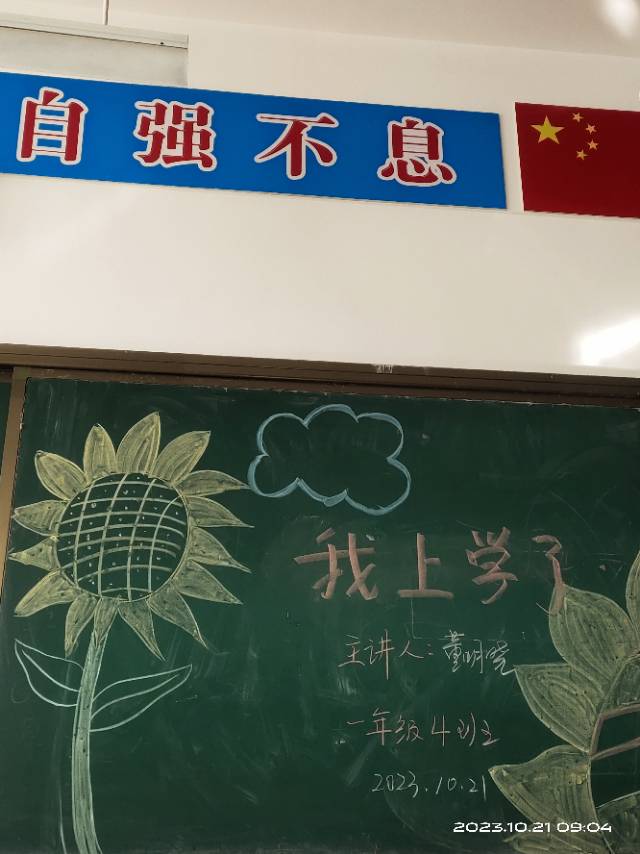 自强不息
我上学了
主讲人:董明晓
一年级4班主
2023.10.21
2023.10.21 09:04